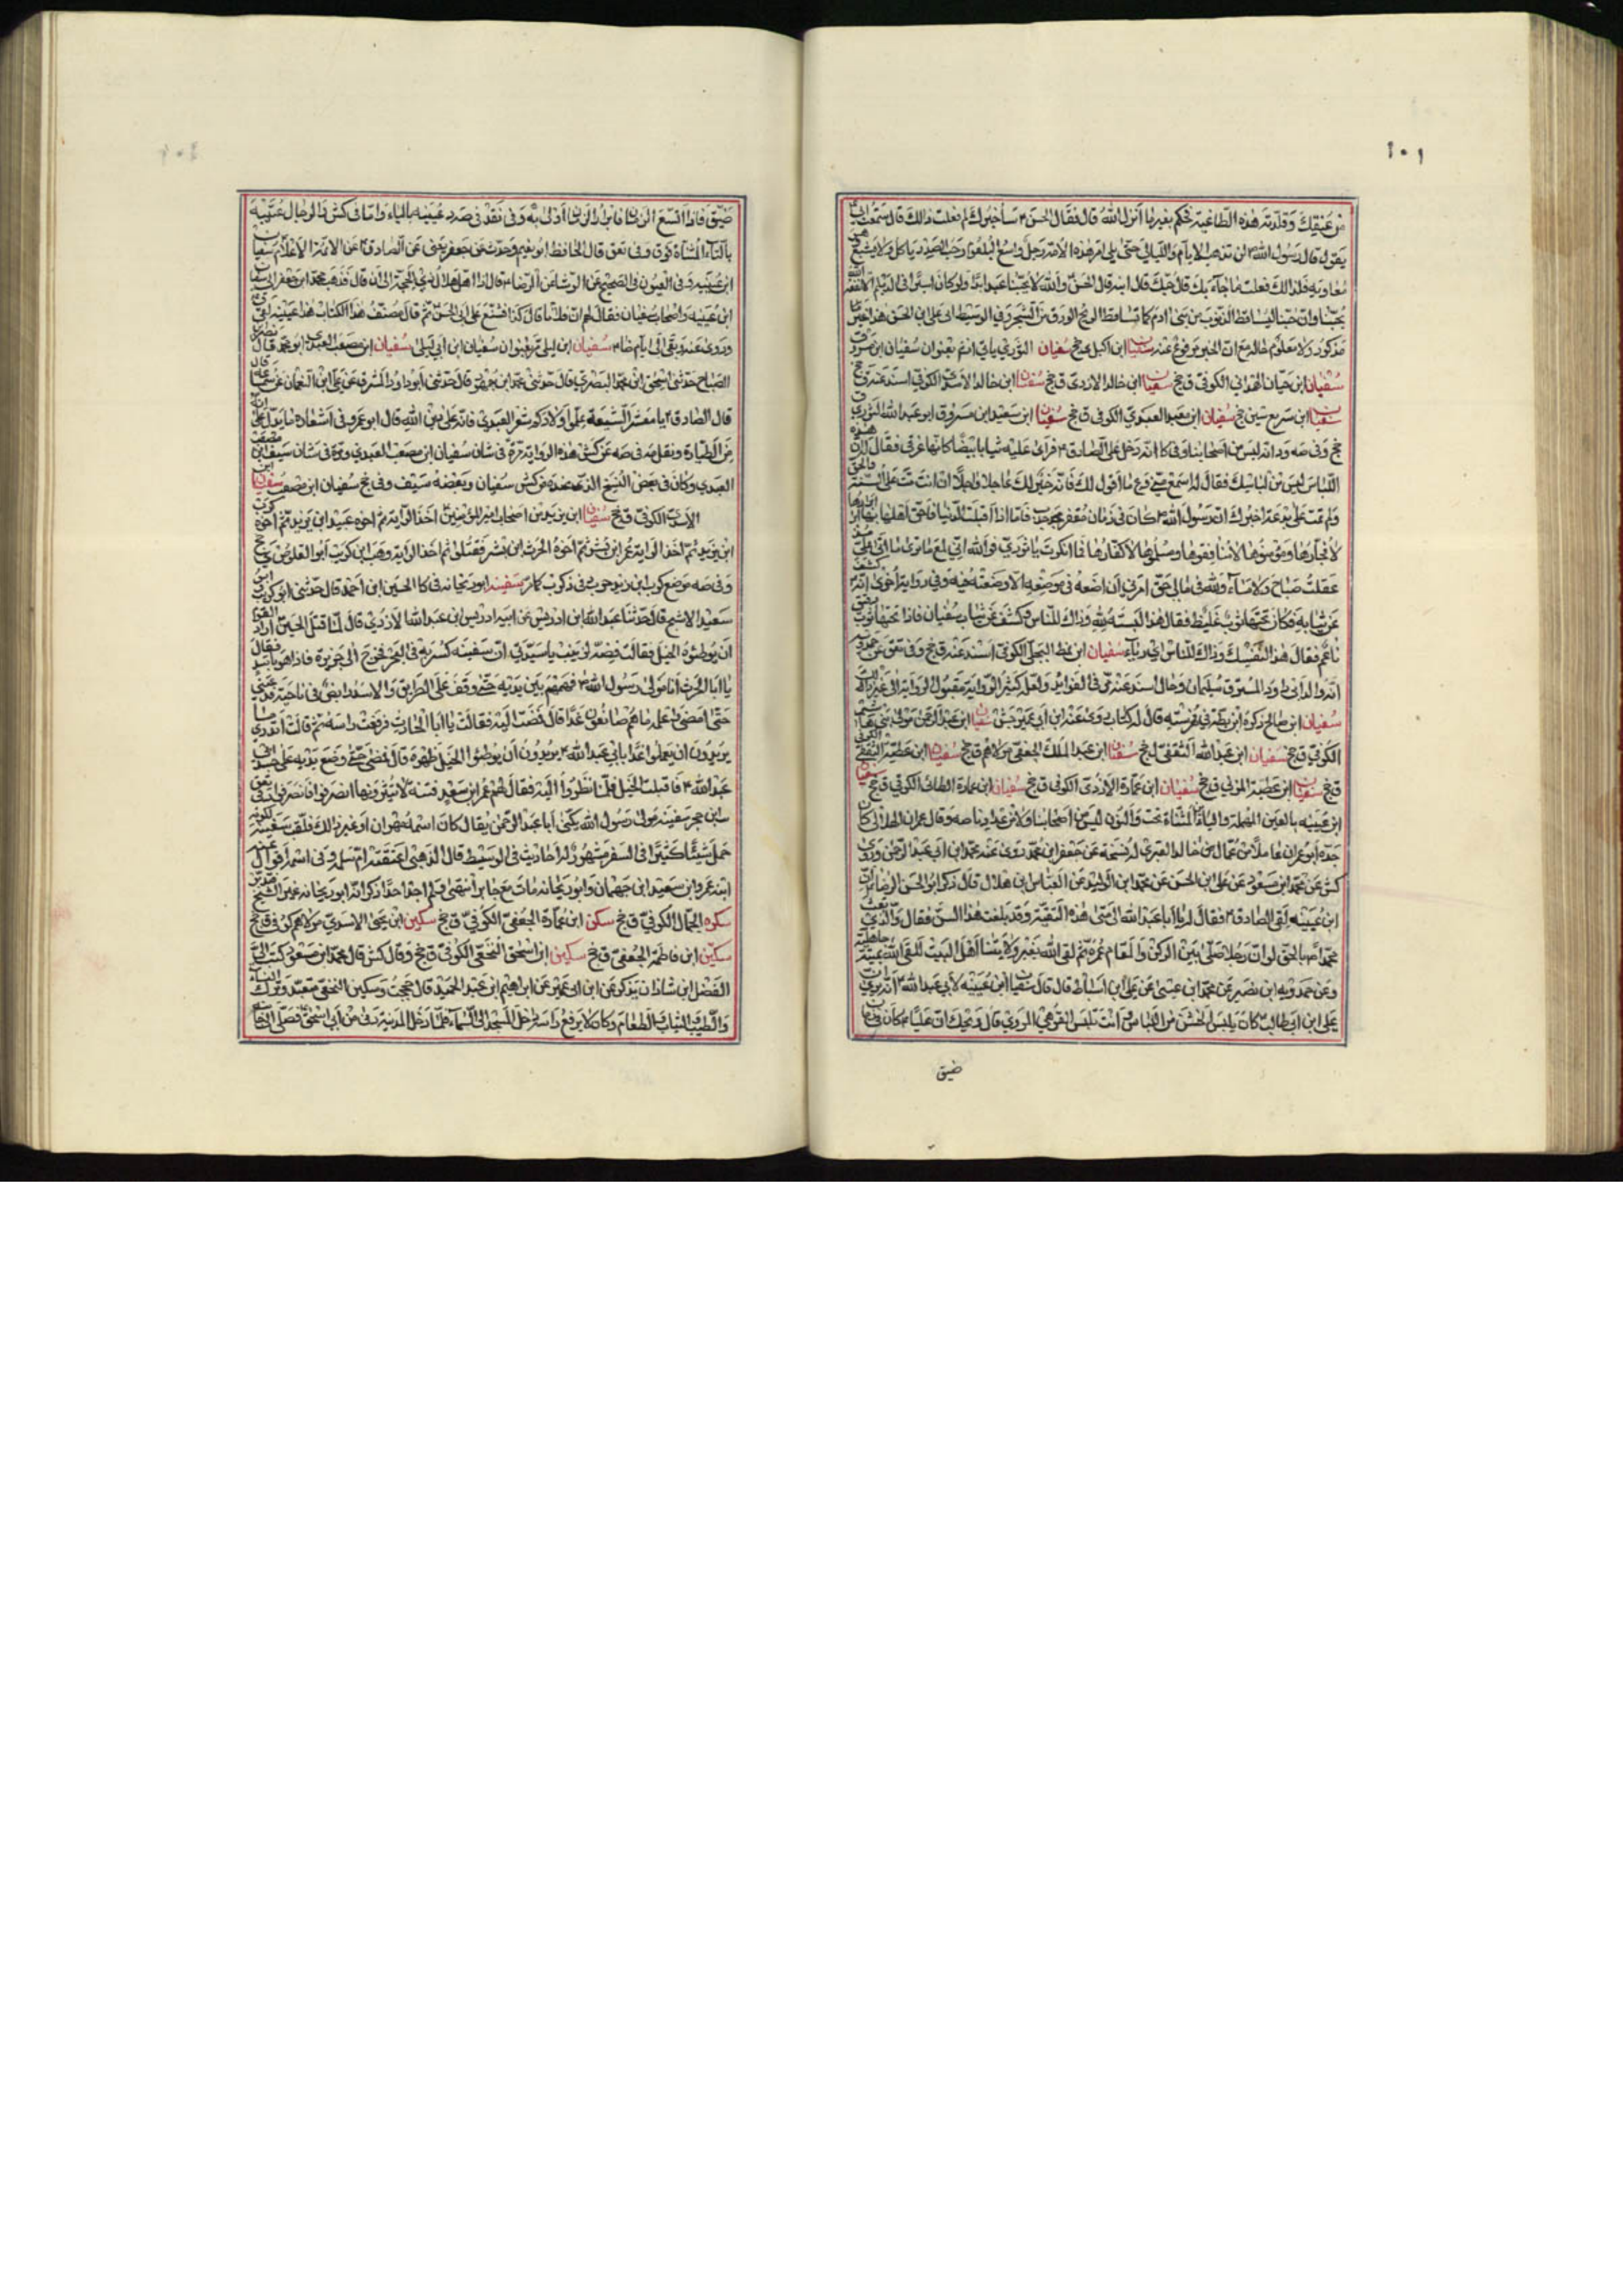 ١٠١
من عنقك وقلدته هذه الطاغية يحكم بغير ما انزل الله قال فقال الحسن ع سأخبرك لم فعلت ذالك قال سمعت ابى
يقول قال رسول الله ص لن تذهب الايام والليالى حتى يلى امر هذه الامة رجل واسع البلعوم رحب الصدر ياكل ولا يشبع
معاوية فلذالك فعلت ما جآء بك قال حبك قال الله قال الحسن والله لا يحبنا عبد ابدا ولو كان اسيرا فى الديلم الا نفعه
يحبنا وان حبنا ليساقط الذنوب من بنى ادم كما تساقط الريح الورق من الشجر وفى الوسيط
مذكور ولا معلوم حاله مع ان الخبر مرفوع عنه سفيان ابن اكيل ى جخ سفيان الثورى ياتى انه بعنوان سفيان ابن مسروق
سفيان ابن حيان الهمدانى الكوفى ق جخ سفيان ابن خالد الازدى ق جخ سفيان ابن خالد الاسدى الكوفى اسند عنه ق جخ
سفيان ابن سريع سين جخ سفيان ابن سعيد العبدى الكوفى ق جخ سفيان ابن سعيد ابن مسروق ابو عبد الله الثورى
جخ وفى صه ود انه ليس من اصحابنا وفى كا انه دخل على الصادق ع فراى عليه ثيابا بيضا كانها غرقى فقال له ان هذه
اللباس ليس من لباسك فقال له اسمع منى وع ما اقول لك فانه خير لك عاجلا واجلا ان انت مت على السنة والحق
ولم تمت على بدعة اخبرك ان رسول الله ص كان فى زمان مقفر جدب فاما اذا اقبلت الدنيا فاحق اهلها بها ابرارها
لا فجارها ومؤمنوها لا منافقوها ومسلموها لا كفارها فما انكرت يا ثورى فوالله انى لمع ما ترى ما اتى على مذ
عقلت صباح ولا مسآء ولله فى مالى حق امرنى ان اضعه موضعا الا وضعته فيه وفى رواية اخرى انه كشف
عن ثيابه فكان تحتها ثوب غليظ فقال هذا البسه لله وذاك للناس وكشف عن ثياب سفيان فاذا تحتها ثوب
ناعم فقال هذا لنفسك وذاك للناس سفيان ابن عطا البجلى الكوفى اسند عنه ق جخ
سفيان ابن صالح ذكره ابن بطة فى فهرسته قال له كتاب روى عنه ابن ابى عمير جش سفيان ابن عبد الرحمن مولى بنى هاشم
الكوفى ق جخ سفيان ابن عبد الله الثقفى ل جخ سفيان ابن عبد الملك الجعفى مولاهم ق جخ سفيان ابن عطية الثقفى الكوفى
ق جخ سفيان ابن عطية المزنى ق جخ سفيان ابن عمارة الازدى الكوفى ق جخ سفيان ابن عمارة الطائى الكوفى ق جخ سفيان
ابن عيينه بالعين المهملة والياء المثناة تحت والنون ليس من اصحابنا ولا من عدادنا صه وقال ابن عمران الهلالى كان
جده ابو عمران عاملا من عمال خالد القسرى له نسخة عن جعفر ابن محمد روى عنه محمد ابن ابى عبد الرحمن وروى
كش عن محمد ابن مسعود عن على ابن الحسن عن محمد ابن الوليد عن العباس ابن هلال قال ذكر ابو الحسن الرضا ع ان سفيان
ابن عيينه لقى الصادق ع فقال له يا ابا عبد الله الى متى هذه التقية وقد بلغت هذا السن فقال والذى بعث
محمدا ص بالحق لو ان رجلا صلى ما بين الركن والمقام عمره ثم لقى الله بغير ولايتنا اهل البيت للقى الله بميتة جاهلية
وعن حمدويه ابن نصير عن محمد ابن عيسى عن على ابن اسباط قال قال سفيان ابن عيينه لابى عبد الله ع انه يروى ان
على ابن ابى طالب ع كان يلبس الخشن من اللباس وانت تلبس القوهى المروى قال ويحك ان عليا ع كان فى زمان
ضيق
ضيق فاذا اتسع الزمان فابرار الزمان اولى به وفى نقد فى صدره عيينه بالياء واما فى كش فى الرجال عتيبه
بالتاء المثناة فوق وفى تعق قال الحافظ ابو نعيم وحدث عن جعفر يعنى عن الصادق ع من الائمة الاعلام سفيان
ابن عيينه وفى العيون فى الصحيح عن الوشا عن الرضا ع قال اذا اهل هلال ذى الحجة الى ان قال فذهب محمد ابن جعفر الى سفيان
ابن عيينه واصحاب سفيان فقال لهم ان فلانا قال كذا فشنع على ابى الحسن ع ثم قال مصنف هذا الكتاب هذا سفيان ابن عيينه لقى ق
وروى عنه وبقى الى ايام ضا ع سفيان ابن ليلى مر بعنوان سفيان ابن ابى ليلى سفيان ابن مصعب العبدى ابو محمد قال نصر ابن
الصباح حدثنى اسحق ابن محمد البصرى قال حدثنى محمد ابن جمهور قال حدثنى ابو داود المسترق عن على ابن النعمان عن سماعة قال
قال الصادق ع يا معشر الشيعة علموا اولادكم شعر العبدى فانه على دين الله قال ابو عمرو فى اشعاره ما يدل على انه
من الطيارة ونقل عنه فى صه عن كش هذه الرواية مرة فى شان سفيان ابن مصعب العبدى ومرة فى شان سيف ابن مصعب
العبدى وكان فى بعض النسخ الذى عنده من كش سفيان وبعضه سيف وفى جخ سفيان ابن مصعب سفيان ابن
الاسدى الكوفى ق جخ سفيان ابن يزيد من اصحاب امير المؤمنين ع اخذ الراية ثم اخوه عبيد ابن يزيد ثم اخوه كرب
ابن يزيد ثم اخذ الراية عمير ابن بشر ثم اخوه الحرث ابن بشر فقتلوا ثم اخذ الراية وهب ابن كريب ابو القلوص ى جخ
وفى صه موضع كرب ابن يزيد حرب فى ذكر كرب كما مر سفينه ابو ريحانه فى كا الحسين ابن احمد قال حدثنى ابو كريب وابو
سعيد الاشج قال حدثنا عبد الله ابن ادريس عن ابيه ادريس ابن عبد الله الازدى قال لما قتل الحسين ع اراد القوم
ان يوطئوه الخيل فقالت فضة لزينب يا سيدتى ان سفينه كسر به فى البحر فخرج الى جزيرة فاذا هو باسد فقال
يا ابا الحرث انا مولى رسول الله ص فهمهم بين يديه حتى وقف على الطريق والاسد رابض فى ناحية فدعينى
حتى امضى واعلمه ما هم صانعون غدا قال فمضت اليه فقالت يا ابا الحارث فرفعت راسه ثم قالت اتدرى ما
يريدون ان يعملوا غدا بابى عبد الله ع يريدون ان يوطئوا الخيل ظهره قال فمضى حتى وضع يديه على جسد ابى
عبد الله ع فاقبلت الخيل فلما نظروا اليه فقال لهم عمر ابن سعد فتنة لا تثيروها انصرفوا فانصرفوا
ابن حجر سفينة مولى رسول الله يكنى ابا عبد الرحمن يقال كان اسمه مهران او غير ذلك فلقب سفينة لكونه
حمل شيئا كثيرا فى السفر مشهور له احاديث فى الوسيط قال الذهبى اعتقته ام سلمة وفى اسمه اقوال عنه
ابنه عمر وابن سعيد ابن جهمان وابو ريحانه مات مع جابر انتهى ولم اجد احدا ذكر انه ابو ريحانه غير الشيخ
سكره الجمال الكوفى ق جخ سكن ابن عمارة الجعفى الكوفى ق جخ سكين ابن يحيى الاسدى مولاهم كوفى ق جخ
سكين ابن فاطمة الجعفى ق جخ سكين ابن اسحق النخعى الكوفى ق جخ وقال كش قال محمد ابن مسعود كتب الى
الفضل ابن شاذان يذكر عن ابن ابى عمير عن ابراهيم ابن عبد الحميد قال حججت وسكين النخعى فتعبد وترك النساء
والطيب والثياب والطعام وكان لا يرفع راسه داخل المسجد الى السماء فلما دخل المدينة دنى من ابى اسحق فصلى الى جانبه